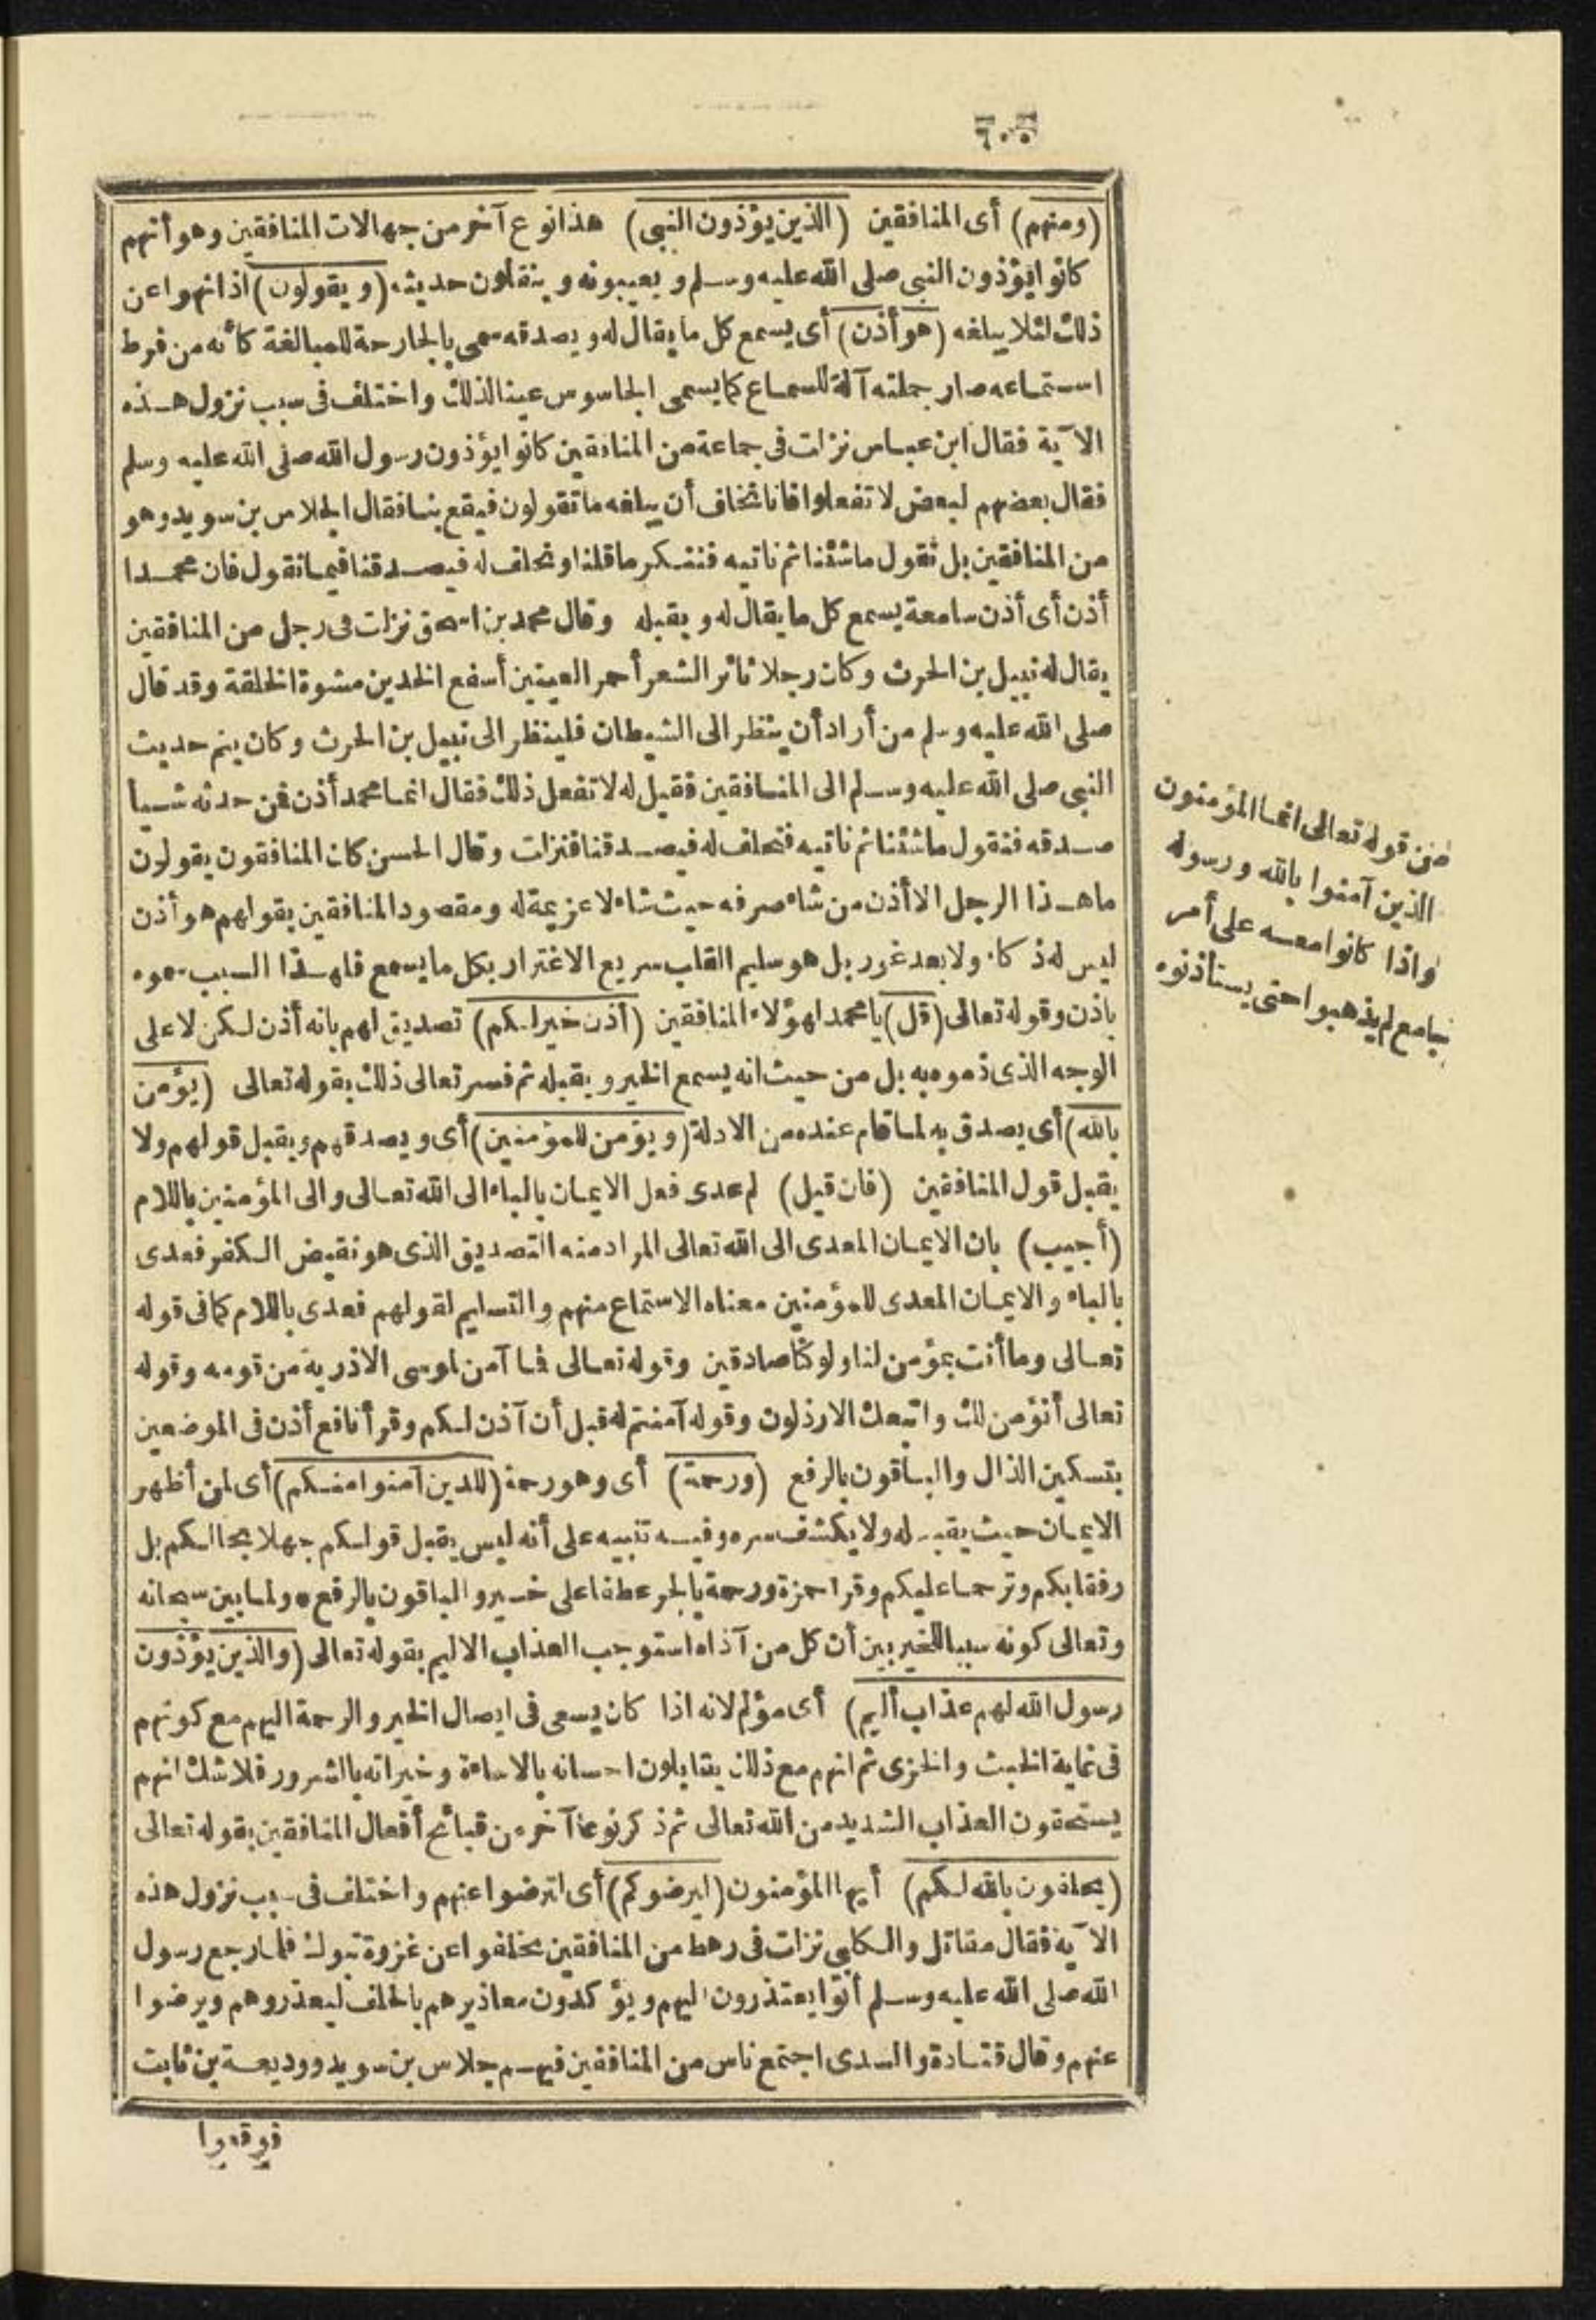 ٦٠٥
(ومنهم) أى المنافقين (الذين يؤذون النبى) هذا نوع آخر من جهالات المنافقين وهو أنهم
كانوا يؤذون النبى صلى الله عليه وسلم ويعيبونه وينقلون حديثه (ويقولون) اذا نهوا عن
ذلك لئلا يبلغه (هو أذن) أى يسمع كل ما يقال له ويصدقه سمى بالجارحة للمبالغة كأنه من فرط
استماعه صار جملته آلة للسماع كما يسمى الجاسوس عينا لذلك واختلف فى سبب نزول هذه
الآية فقال ابن عباس نزلت فى جماعة من المنافقين كانوا يؤذون رسول الله صلى الله عليه وسلم
فقال بعضهم لبعض لا تفعلوا فانا نخاف أن يبلغه ما تقولون فيقع بنا فقال الجلاس بن سويد وهو
من المنافقين بل نقول ما شئنا ثم ناتيه فننكر ما قلنا ونحلف له فيصدقنا فيما نقول فان محمدا
أذن أى أذن سامعة يسمع كل ما يقال له ويقبله وقال محمد بن اسحق نزلت فى رجل من المنافقين
يقال له نبيل بن الحرث وكان رجلا ثائر الشعر أحمر العينين أسفع الخدين مشوه الخلقة وقد قال
صلى الله عليه وسلم من أراد أن ينظر الى الشيطان فلينظر الى نبيل بن الحرث وكان ينم حديث
النبى صلى الله عليه وسلم الى المنافقين فقيل له لا تفعل ذلك فقال انما محمد أذن فمن حدثه شيأ
صدقه فنقول ما شئنا ثم ناتيه فنحلف له فيصدقنا فنزلت وقال الحسن كان المنافقون يقولون
ما هذا الرجل الا أذن من شاء صرفه حيث شاء لا عزيمة له ومقصود المنافقين بقولهم هو أذن
ليس له ذكاء ولا بعد غور بل هو سليم القلب سريع الاغترار بكل ما يسمع فلهذا السبب سموه
باذن وقوله تعالى (قل) يا محمد لهؤلاء المنافقين (أذن خير لكم) تصديق لهم بانه أذن لكن لا على
الوجه الذى ذموه به بل من حيث انه يسمع الخير ويقبله ثم فسر تعالى ذلك بقوله تعالى (يؤمن
بالله) أى يصدق به لما قام عنده من الادلة (ويؤمن للمؤمنين) أى ويصدقهم ويقبل قولهم ولا
يقبل قول المنافقين (فان قيل) لم عدى فعل الايمان بالباء الى الله تعالى والى المؤمنين باللام
(أجيب) بان الايمان المعدى الى الله تعالى المراد منه التصديق الذى هو نقيض الكفر فعدى
بالباء والايمان المعدى للمؤمنين معناه الاستماع منهم والتسليم لقولهم فعدى باللام كما فى قوله
تعالى وما أنت بمؤمن لنا ولو كنا صادقين وقوله تعالى فما آمن لموسى الا ذرية من قومه وقوله
تعالى أنؤمن لك واتبعك الارذلون وقوله آمنتم له قبل أن آذن لكم وقرأ نافع أذن فى الموضعين
بتسكين الذال والباقون بالرفع (ورحمة) أى وهو رحمة (للذين آمنوا منكم) أى لمن أظهر
الايمان حيث يقبله ولا يكشف سره وفيه تنبيه على أنه ليس يقبل قولكم جهلا بحالكم بل
رفقا بكم وترحما عليكم وقرا حمزة ورحمة بالجر عطفا على خير والباقون بالرفع * ولما بين سبحانه
وتعالى كونه سببا للخير بين أن كل من آذاه استوجب العذاب الاليم بقوله تعالى (والذين يؤذون
رسول الله لهم عذاب أليم) أى مؤلم لانه اذا كان يسعى فى ايصال الخير والرحمة اليهم مع كونهم
فى غاية الخبث والخزى ثم انهم مع ذلك يقابلون احسانه بالاساءة وخيراته بالشرور فلا شك انهم
يستحقون العذاب الشديد من الله تعالى ثم ذكر نوعا آخر من قبائح أفعال المنافقين بقوله تعالى
(يحلفون بالله لكم) أيها المؤمنون (ليرضوكم) أى لترضوا عنهم واختلف فى سبب نزول هذه
الآية فقال مقاتل والكلبى نزلت فى رهط من المنافقين تخلفوا عن غزوة تبوك فلما رجع رسول
الله صلى الله عليه وسلم أتوا يعتذرون اليهم ويؤكدون معاذيرهم بالحلف ليعذروهم ويرضوا
عنهم وقال قتادة والسدى اجتمع ناس من المنافقين فيهم جلاس بن سويد ووديعة بن ثابت
فوقعوا
من قوله تعالى انما المؤمنون
الذين آمنوا بالله ورسوله
واذا كانوا معه على أمر
جامع لم يذهبوا حتى يستأذنوه